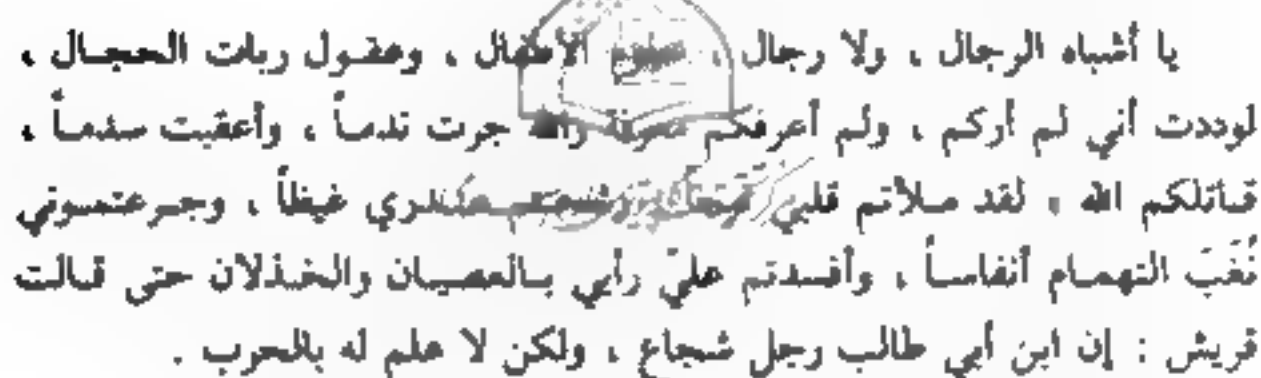 يا أشباه الرجال ، ولا رجال ، حلوم الأطفال ، وعقول ربات الحجال ،
لوددت أني لم أركم ، ولم أعرفكم معرفة والله جرت ندماً ، وأعقبت سدماً ،
قاتلكم الله ، لقد ملأتم قلبي غيظاً ، وجرعتموني
نُغَبَ التهمام أنفاساً ، وأفسدتم عليّ رأيي بالعصيان والخذلان حتى قالت
قريش : إن ابن أبي طالب رجل شجاع ، ولكن لا علم له بالحرب .